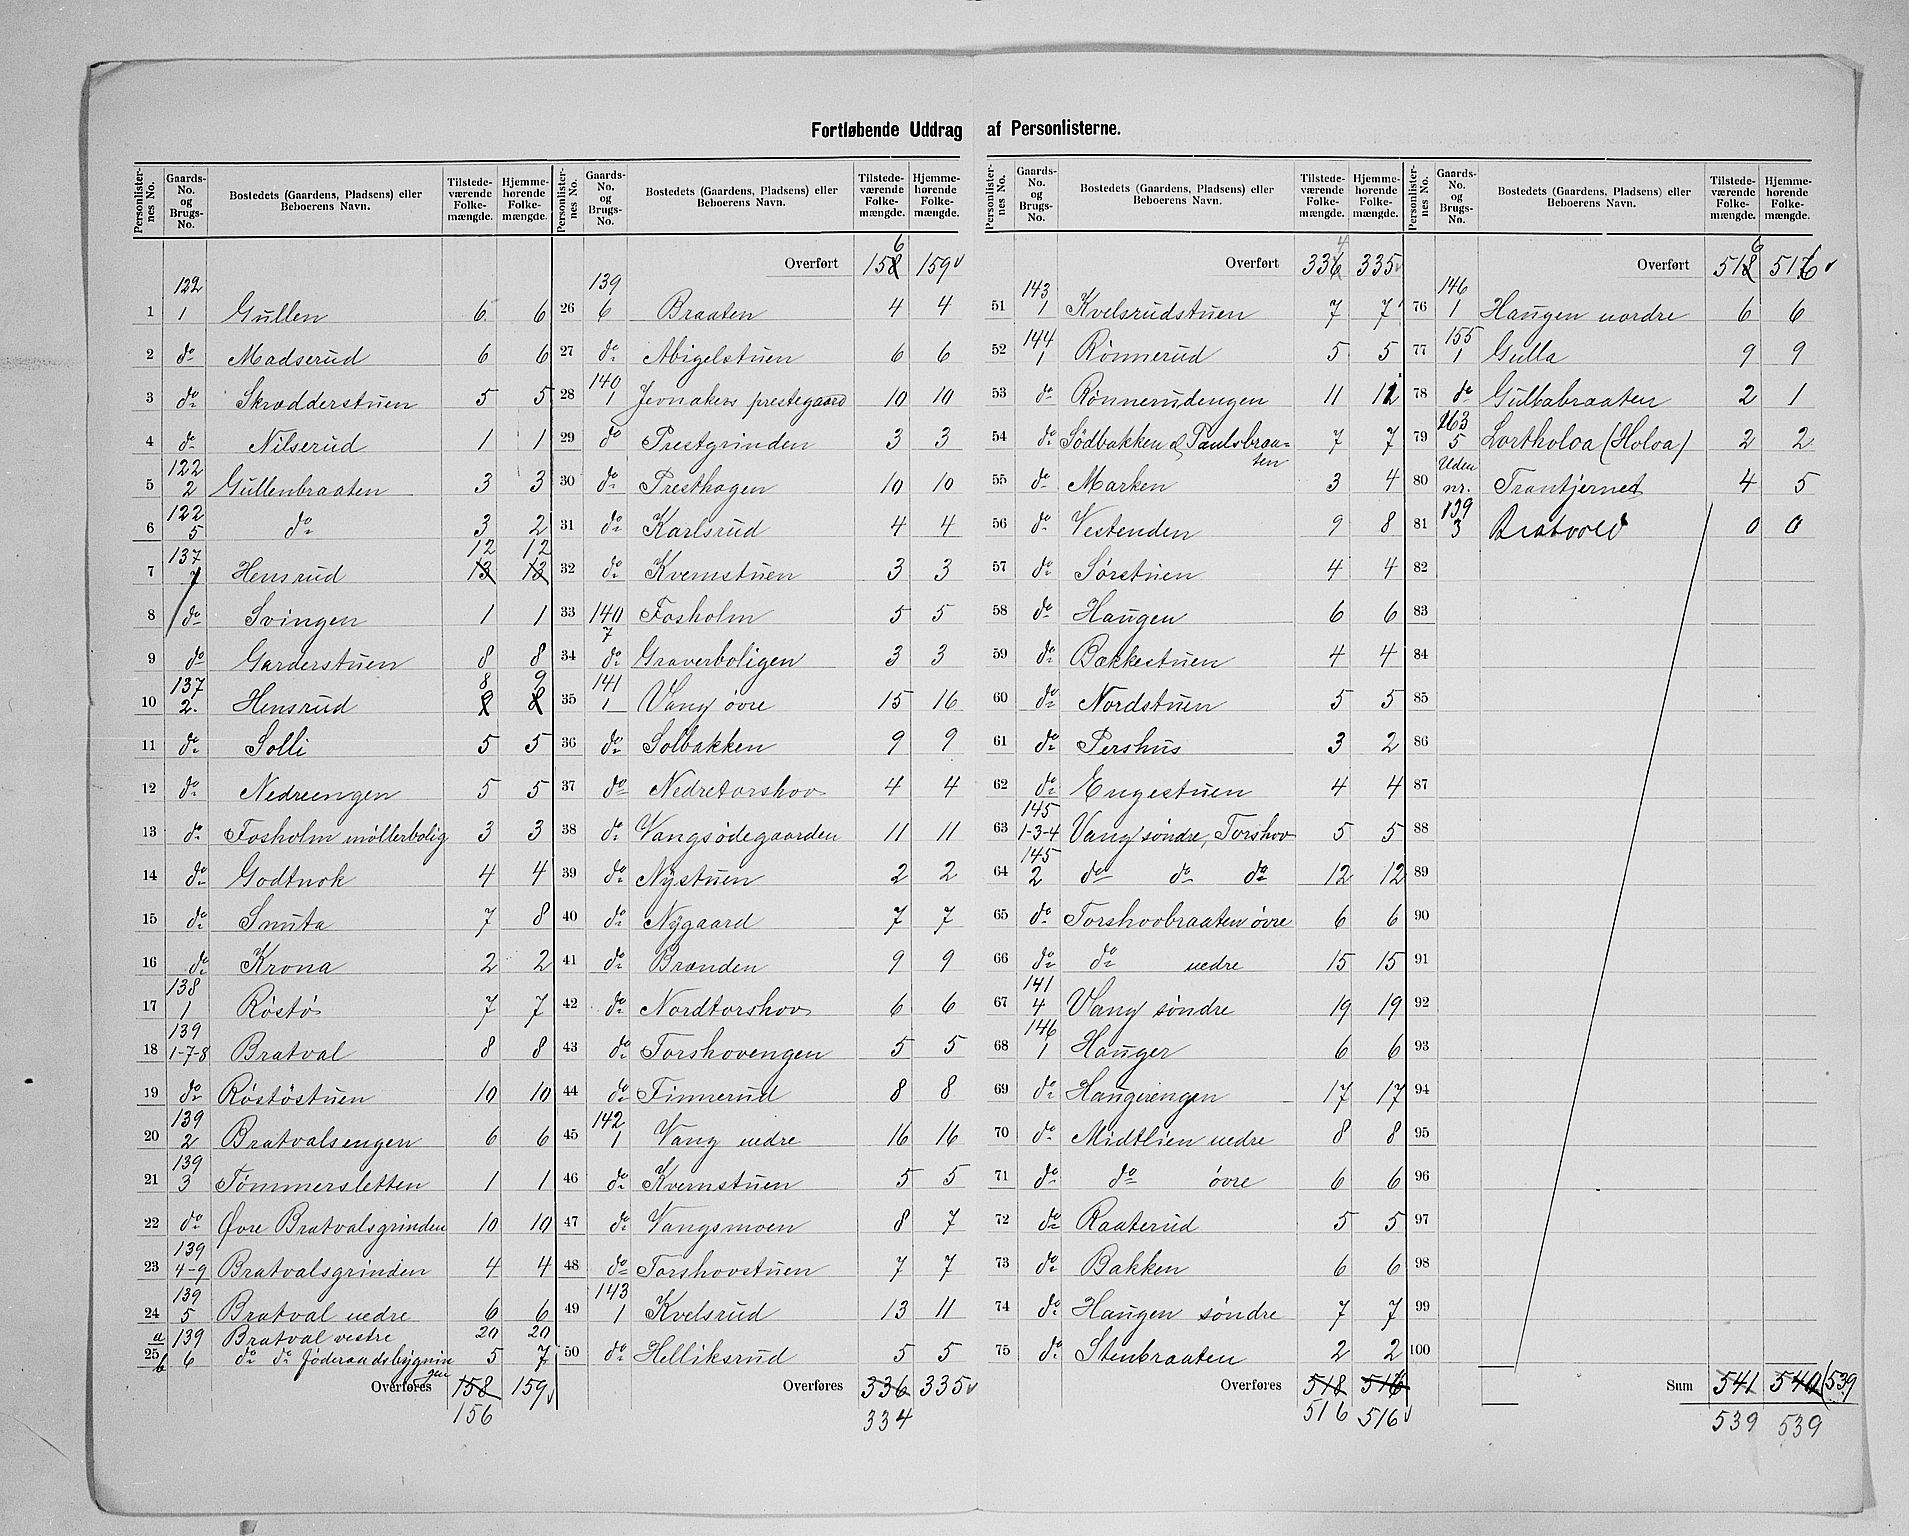 Fortløbende Uddrag af Personlisterne.
Personlisternes No. | Gaards-No. og Brugs-No. | Bostedets (Gaardens, Pladsens) eller Beboerens Navn. | Tilstedeværende Folkemængde. | Hjemmehørende Folkemængde.
1 | 122 1 | Gullen | 6 | 6
2 | do | Madserud | 6 | 6
3 | do | Skrædderstuen | 5 | 5
4 | do | Nilserud | 1 | 1
5 | 122 2 | Gullenbraaten | 3 | 3
6 | 122 5 | do | 3 | 2
7 | 137 1 | Hensrud | 12 13 | 12 13
8 | do | Svingen | 1 | 1
9 | do | Garderstuen | 8 | 8
10 | 137 2. | Hensrud | 8 9 | 9 8
11 | do | Solli | 5 | 5
12 | do | Nedreengen | 5 | 5
13 | do | Fosholm møllerbolig | 3 | 3
14 | do | Godtnok | 4 | 4
15 | do | Snuta | 7 | 8
16 | do | Krona | 2 | 2
17 | 138 1 | Røstø | 7 | 7
18 | 139 1-7-8 | Bratval | 8 | 8
19 | do | Røstøstuen | 10 | 10
20 | 139 2 | Bratvalsengen | 6 | 6
21 | 139 3 | Tømmersletten | 1 | 1
22 | do | Øvre Bratvalsgrinden | 10 | 10
23 | 139 4-9 | Bratvalsgrinden | 4 | 4
24 | 139 5 | Bratval nedre | 6 | 6
25 a | 139 | Bratval vestre | 20 | 20
b | 6 | do do føderaadsbygningen | 5 | 7
Overføres 158 159
156
Personlisternes No. | Gaards-No. og Brugs-No. | Bostedets (Gaardens, Pladsens) eller Beboerens Navn. | Tilstedeværende Folkemængde. | Hjemmehørende Folkemængde.
Overført 158 6 | 159
26 | 139 6 | Braaten | 4 | 4
27 | do | Abigelstuen | 6 | 6
28 | 140 1 | Jevnakers prestegaard | 10 | 10
29 | do | Prestgrinden | 3 | 3
30 | do | Presthagen | 10 | 10
31 | do | Karlsrud | 4 | 4
32 | do | Kvernstuen | 3 | 3
33 | 140 7 | Fosholm | 5 | 5
34 | do | Graverboligen | 3 | 3
35 | 141 1 | Vang øvre | 15 | 16
36 | do | Solbakken | 9 | 9
37 | do | Nedretorshov | 4 | 4
38 | do | Vangsødegaarden | 11 | 11
39 | do | Nystuen | 2 | 2
40 | do | Nygaard | 7 | 7
41 | do | Brænden | 9 | 9
42 | do | Nordtorshov | 6 | 6
43 | do | Torshovengen | 5 | 5
44 | do | Finnerud | 8 | 8
45 | 142 1 | Vang nedre | 16 | 16
46 | do | Kvernstuen | 5 | 5
47 | do | Vangsmoen | 8 | 7
48 | do | Torshovstuen | 7 | 7
49 | 143 1 | Kvelsrud | 13 | 11
50 | do | Helliksrud | 5 | 5
Overføres 336 335
334
Personlisternes No. | Gaards-No. og Brugs-No. | Bostedets (Gaardens, Pladsens) eller Beboerens Navn. | Tilstedeværende Folkemængde. | Hjemmehørende Folkemængde.
Overført 336 4 | 335
51 | 143 1 | Kvelsrudstuen | 7 | 7
52 | 144 1 | Rønnerud | 5 | 5
53 | do | Rønnerudengen | 11 | 11
54 | do | Sødbakken & Paulsbraaten | 7 | 7
55 | do | Marken | 3 | 4
56 | do | Vestenden | 9 | 8
57 | do | Sørstuen | 4 | 4
58 | do | Haugen | 6 | 6
59 | do | Bakkestuen | 4 | 4
60 | do | Nordstuen | 5 | 5
61 | do | Pershus | 3 | 2
62 | do | Engestuen | 4 | 4
63 | 145 1-3-4 | Vang søndre, Torshov | 5 | 5
64 | 145 2 | do do do | 12 | 12
65 | do | Torshovbraaten øvre | 6 | 6
66 | do | do nedre | 15 | 15
67 | 141 4 | Vang søndre | 19 | 19
68 | 146 1 | Hauger | 6 | 6
69 | do | Haugerengen | 17 | 17
70 | do | Midtlien nedre | 8 | 8
71 | do | do øvre | 6 | 6
72 | do | Raaterud | 5 | 5
73 | do | Bakken | 6 | 6
74 | do | Haugen søndre | 7 | 7
75 | do | Stenbraaten | 2 | 2
Overføres 518 516
516 516
Personlisternes No. | Gaards-No. og Brugs-No. | Bostedets (Gaardens, Pladsens) eller Beboerens Navn. | Tilstedeværende Folkemængde. | Hjemmehørende Folkemængde.
Overført 518 6 | 516
76 | 146 1 | Haugen nordre | 6 | 6
77 | 155 1 | Gulla | 9 | 9
78 | do | Gullabraaten | 2 | 1
79 | 163 5 | Lortholoa (Holoa) | 2 | 2
80 | Uden nr. | Trantjernet | 4 | 5
81 | 139 3 | Bratvold | 0 | 0
82
83
84
85
86
87
88
89
90
91
92
93
94
95
96
97
98
99
100
Sum 541 540 (539
539 539